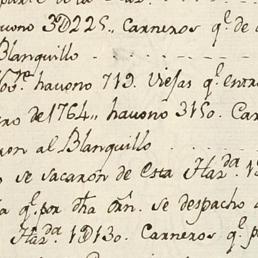 huvono 3D225,, Carneros q.e de
Blanquillo
Jos.e huvono 719. Viejas q.e entre
ro de 1764,, huvono 3150. Car
ron al Blanquillo
se sacaron de Esta Haz.da
q.e por dha orn. se despacho
Haz.da 1D130. Carneros q.e p